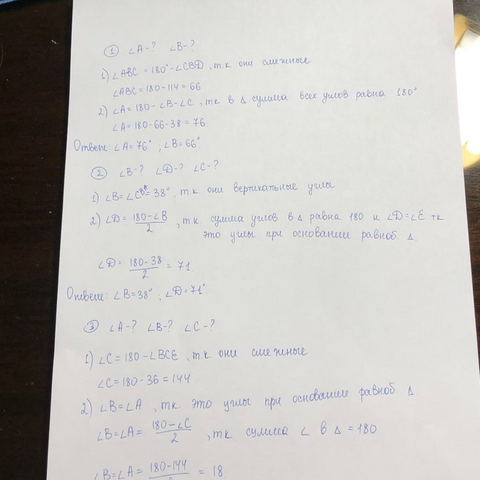 ① ∠A-? ∠B-?
1) ∠ABC = 180°-∠CBD, т.к они смежные
∠ABC = 180-114 = 66
2) ∠A = 180-∠B-∠C, т.к в Δ сумма всех углов равна 180°
∠A = 180-66-38 = 76
Ответ: ∠A=76°, ∠B=66°
② ∠B-? ∠D-? ∠C-?
1) ∠B = 38°, т.к. они вертикальные углы
2) ∠D = (180-∠B)/2, т.к. сумма углов в Δ равна 180 и ∠D=∠E тк
это углы при основании равноб Δ
∠D = (180-38)/2 = 71
Ответ: ∠B=38°, ∠D=71°
③ ∠A-? ∠B-? ∠C-?
1) ∠C = 180-∠BCE, т.к они смежные
∠C = 180-36 = 144
2) ∠B=∠A, тк это углы при основании равноб Δ
∠B=∠A = (180-∠C)/2, тк сумма ∠ в Δ = 180
∠B=∠A = 180-144 = 18